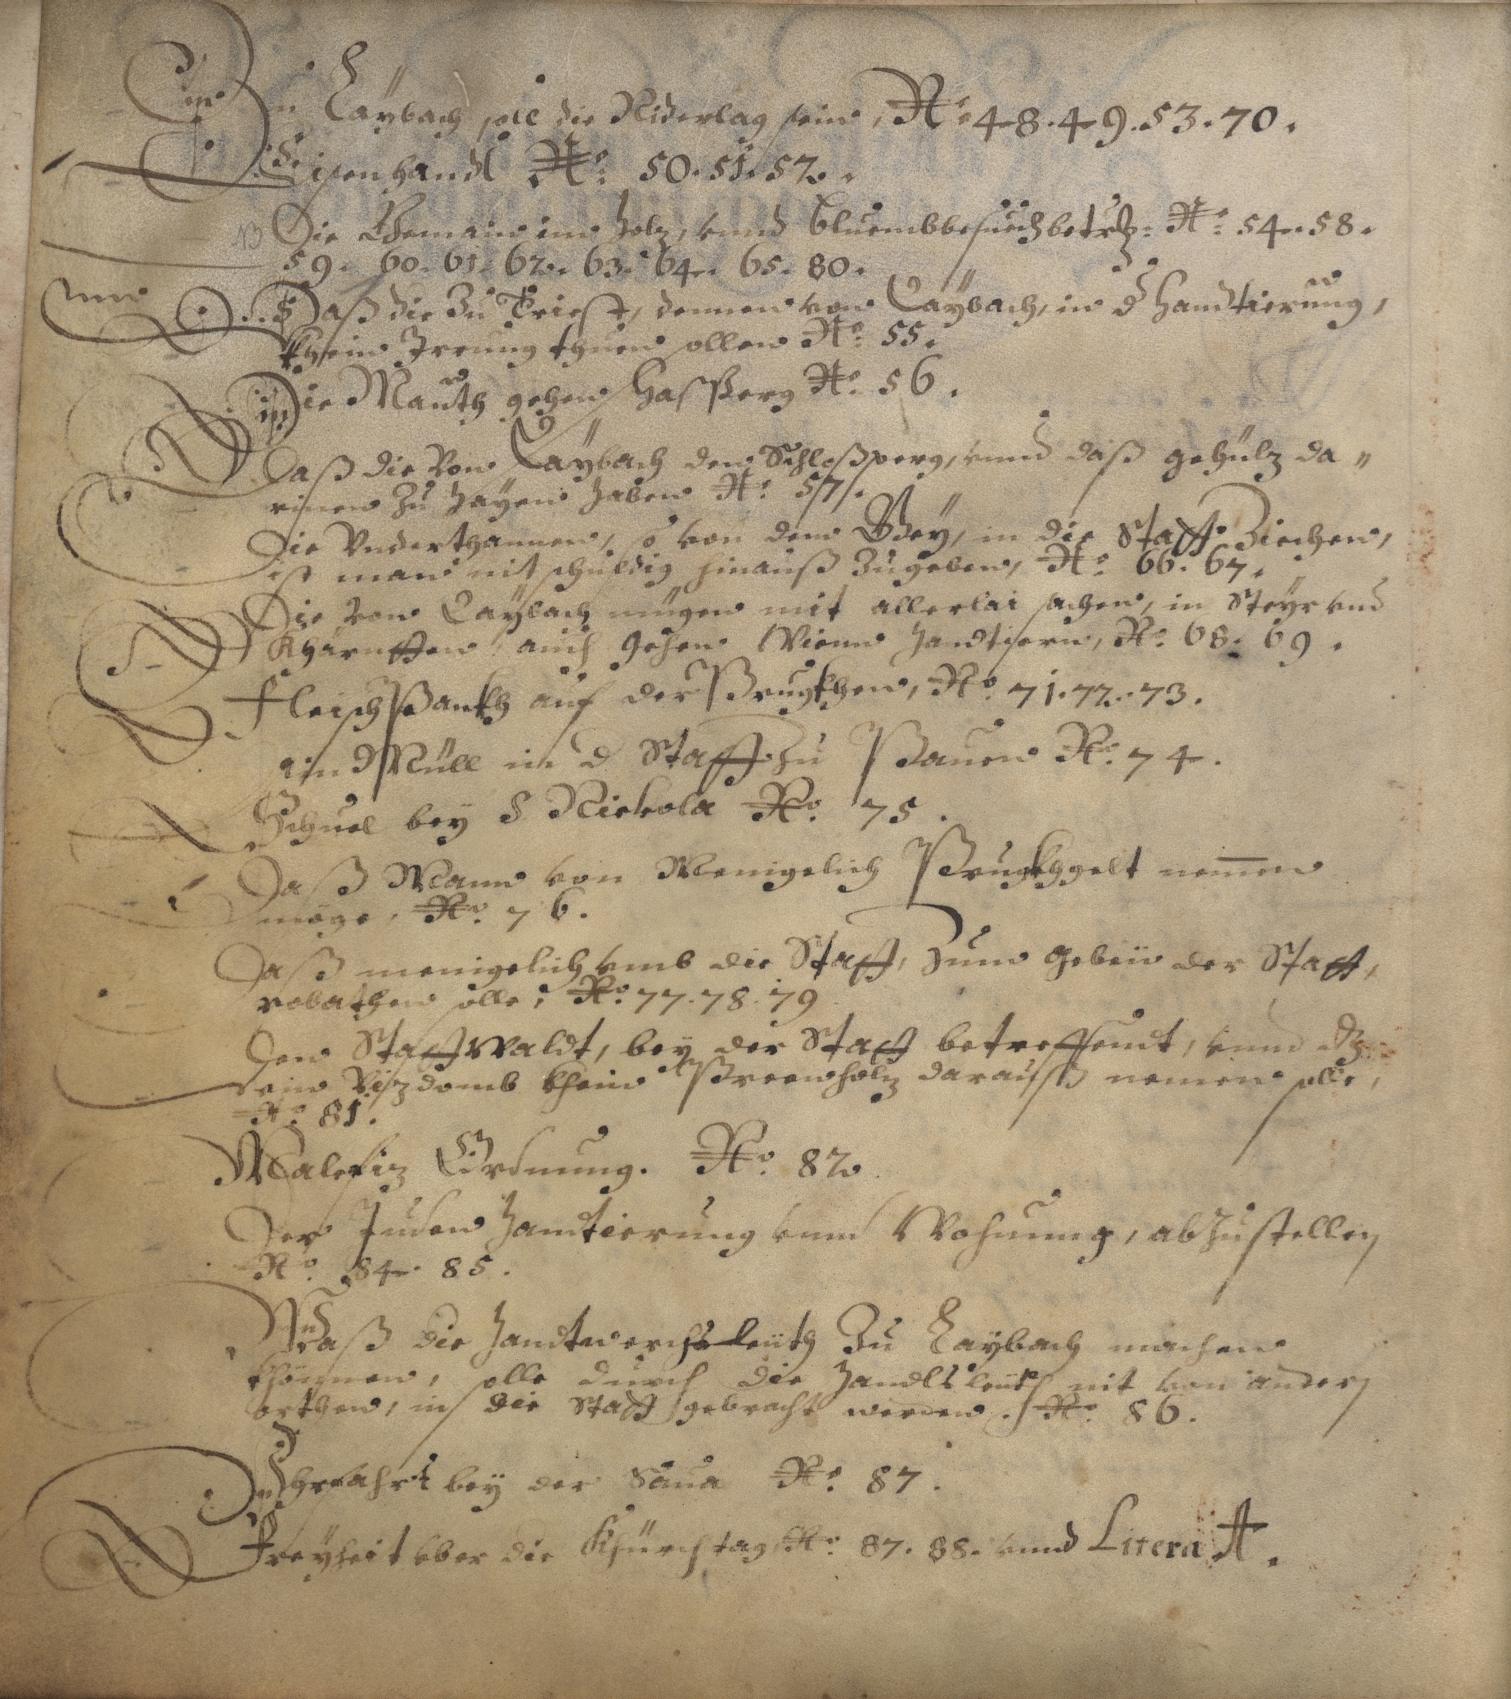 In Laÿbach soll die Niderlag sein, No: 48. 49. 53. 70.
Eisenhandl No: 50. 51. 52.
Die Gemain im Holz, vnnd Bluembbesuech betrf: No: 54. 58.
59. 60. 61. 62. 63. 64. 65. 80.
Daß die Zu Triest, dennen von Laÿbach, in d Handtierung,
khein Irrung thuen sollen No: 55.
Die Mauth gehen Hassperg No. 56.
Daß die von Laÿbach den Schloßperg, vnnd daß gehülz da„
rinen Zu Haÿen haben No: 57.
Die Vnderthannen, so von dem Geÿ, in die Statt Ziechen,
ist man nit schuldig hinauß Zugeben, No: 66. 67.
Die von Laÿbach mügen mit allerlai sachen, in Steÿr vnd
Khärntten, auch gehen Wienn handtiern, No: 68. 69.
Fleisch Pankh auf der Prugkhen, No: 71. 72. 73.
ain Müll in d Statt Zu Pauen No. 74.
Schuel beÿ S Nickola No. 75.
Daß Mann von Menigelich Prugkhgelt nemen
möge, No. 76.
Daß menigelich vmb die Statt, Zum gebeü der Statt,
robathen solle, No: 77. 78. 79
Den Stattwaldt, beÿ der Statt betreffendt, vnnd dz
ein Vizdomb khein Preenholz darauß nemen solle,
No: 81.
Malefiz Ordnung. No: 82
Der Juden Handtierung vnnd Wohnung, abZustellen
No: 84. 85.
Waß die Handtwerchsleüth Zu Laybach machen
khönnen, solle durch die Handlsleüth nit von andern
orthen, in die Statt gebracht werden. No: 86.
Vhrfahrt beÿ der Saua No: 87.
Freÿheit vber die Khürchtag No: 87. 88. vnnd Litera A.